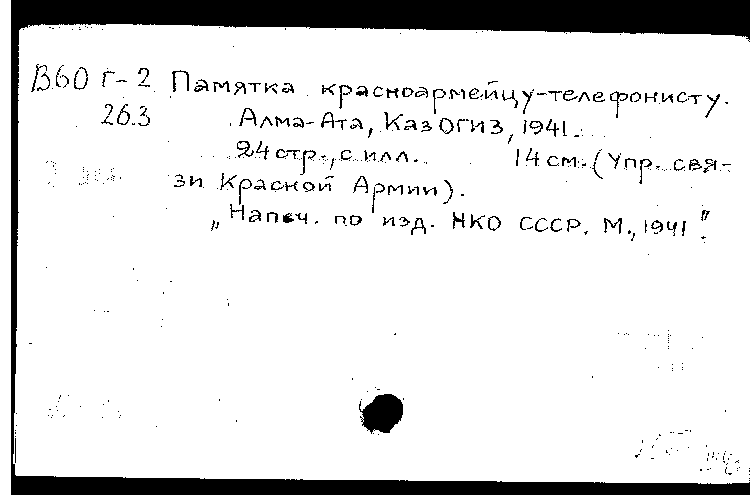 В60 г-2 Памятка красноармейцу-телефонисту.
26.3 Алма-Ата, КазОГИЗ, 1941.
24 стр., с илл. 14 см. (Упр. свя-
зи Красной Армии).
„Напеч. по изд. НКО СССР. М., 1941".